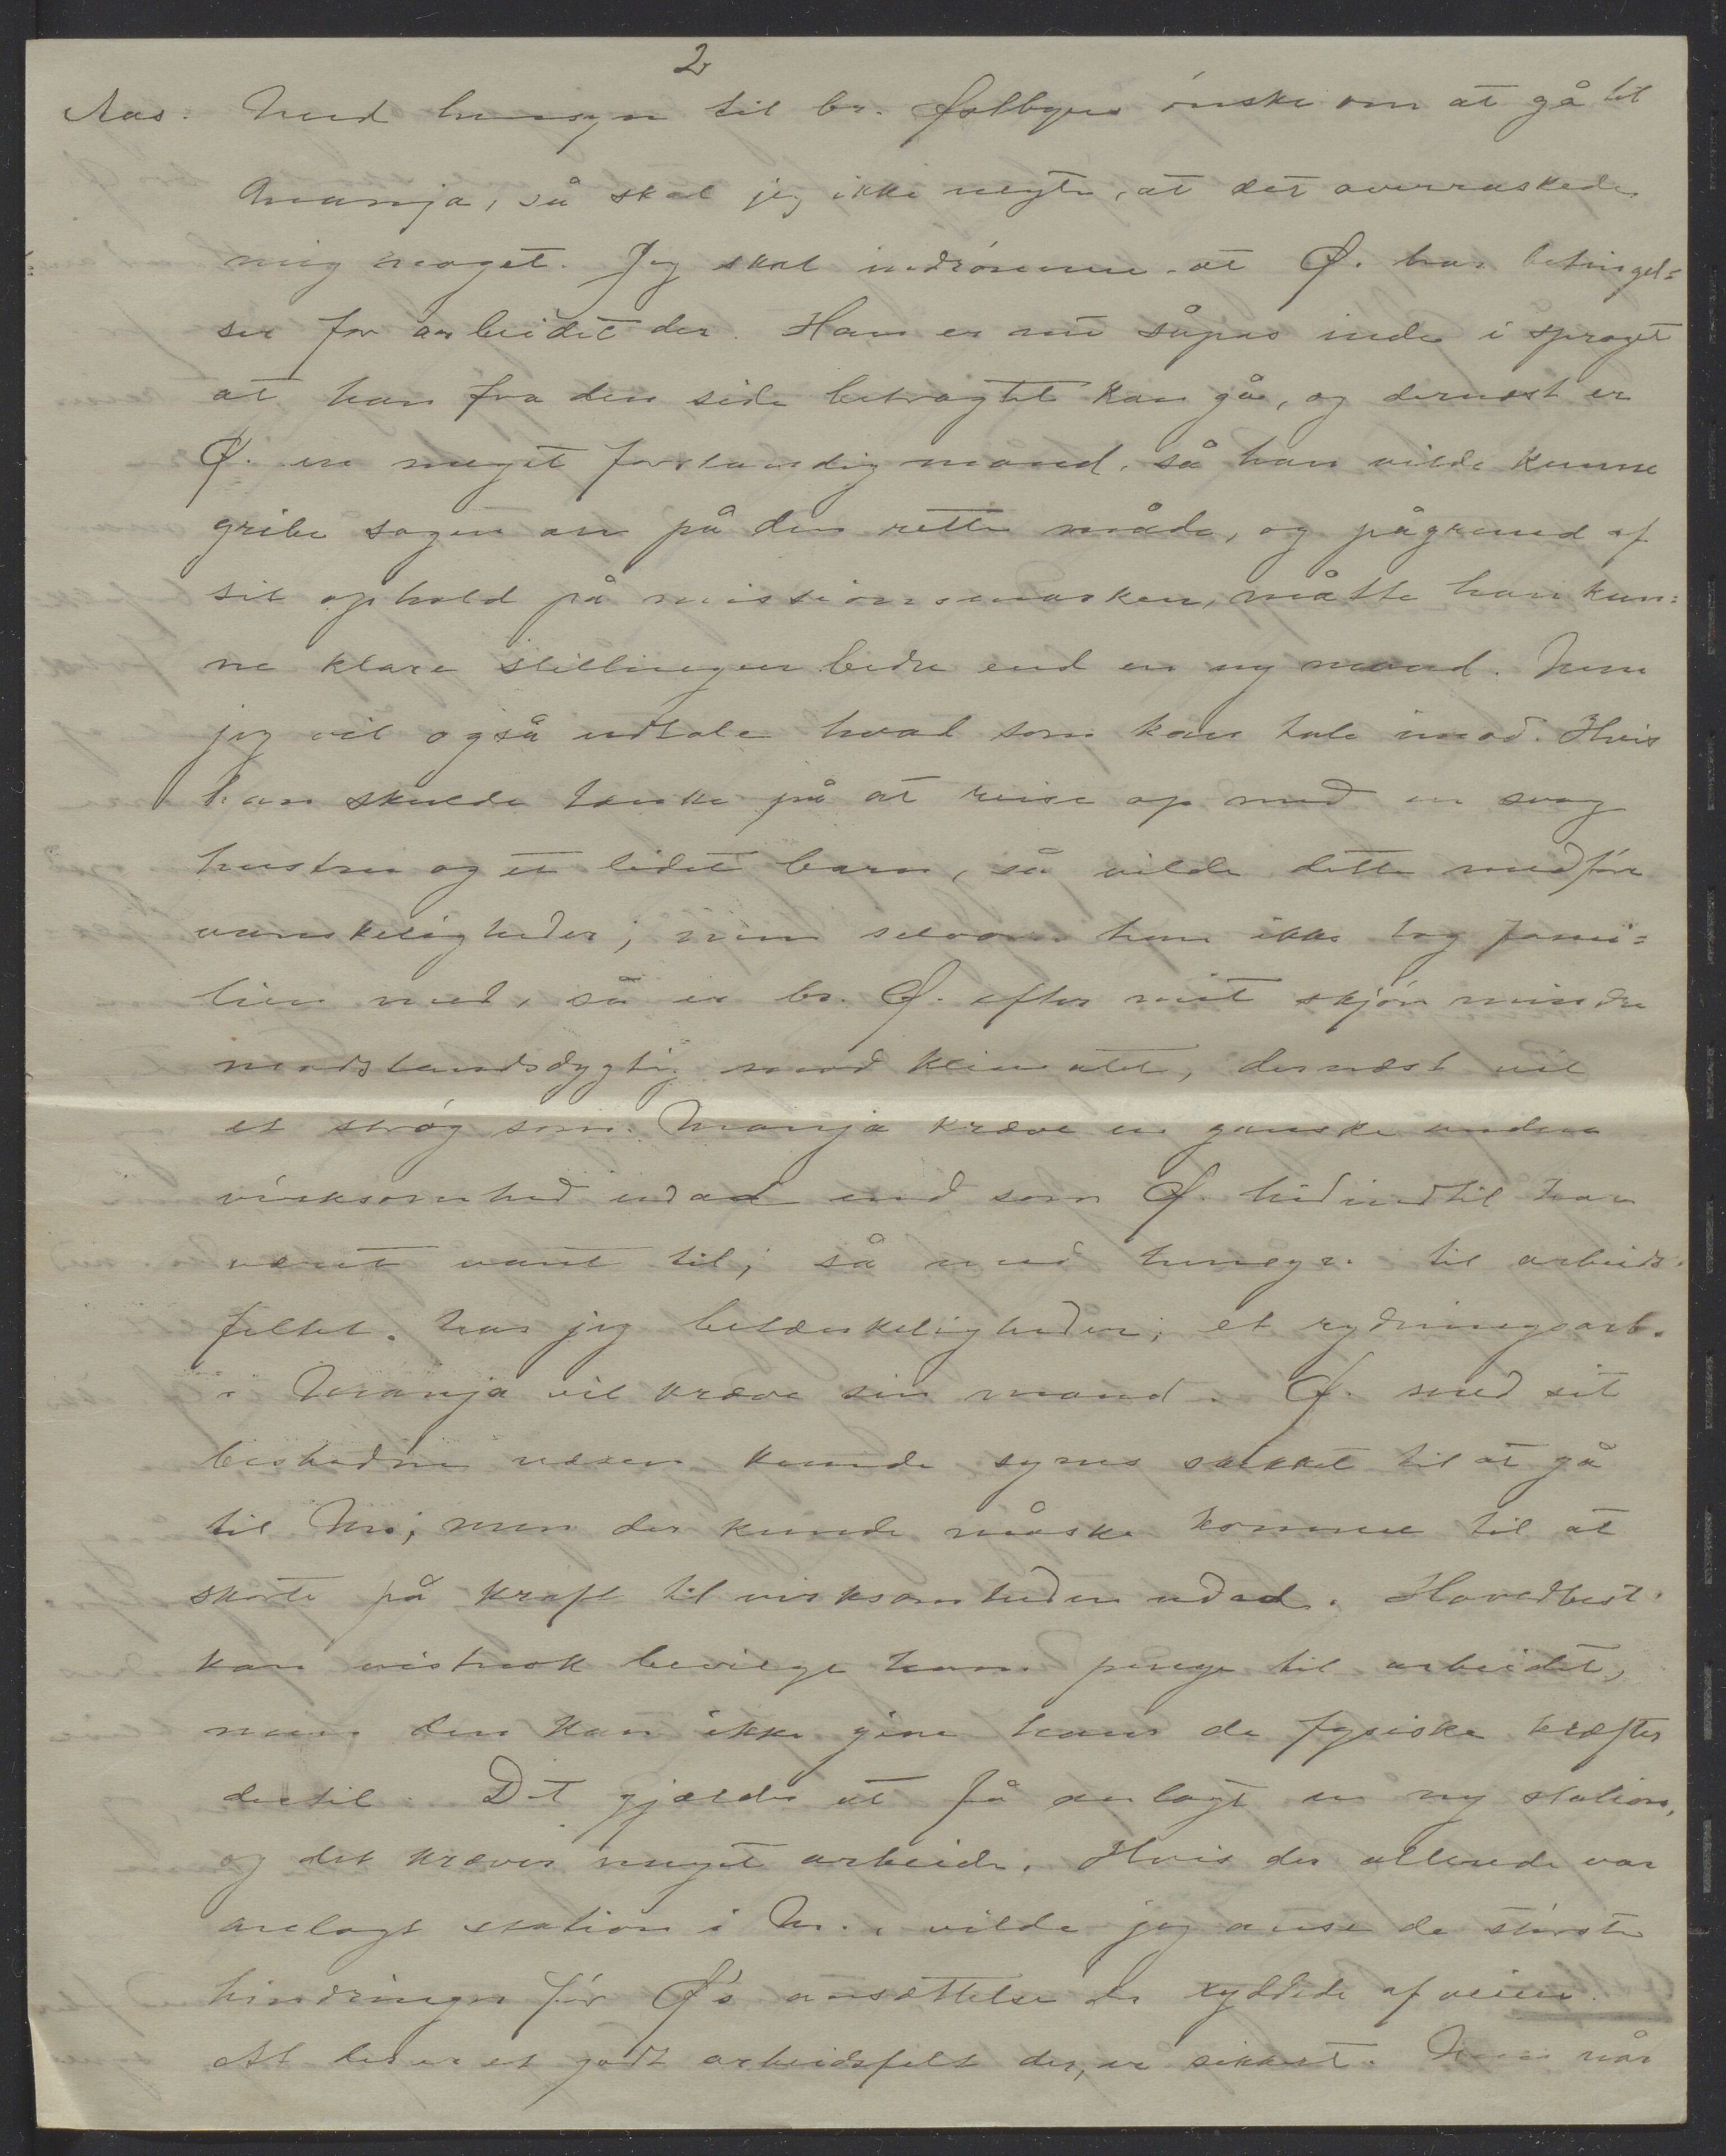 2
Aas. Med hensyn til br. Østbyes ónske om at gå til
Manja, så skal jeg ikke negte, at det overraskede
mig noget. Jeg skal indrómme at Ø. har betingel=
ser for arbeidet der. Han er nu såpas inde i sproget
at han fra den side betragtet kan gå, og dernæst er
Ø. en meget forstandig mand, så han vilde kunne
gribe sagen an på den rette måde, og pågrund af
sit ophold på missionsmarken, måtte han kun=
ne klare stillingen bedre end en ny mand. Men
jeg vil også udtale hvad som kan tale imod. Hvis
han skulde tænke på at reise op med en svag
hustru og et lidet barn, så vilde dette medfóre
vanskeligheder; men selvom han ikke tog fami=
lien med, så er br. Ø. efter mit skjón mindre
modstandsdygtig mod klimatet, dernæst vil
et stróg som Manja kræve en ganske anden
virksomhed udad end som Ø. hidindtil har
været vant til; så med hensyn til arbeids=
feltet har jeg betænkeligheder; et rydningsarb.
i Manja vil kræve sin mand. Ø. med sit
beskedne væsen kunde synes skikket til at gå
til M.; men der kunde måske komme til at
skorte på kraft til virksomheden udad. Hovedbest.
kan vistnok bevilge ham penge til arbeidet,
men den kan ikke give ham de fysiske kræfter
dertil. Det gjælder at få anlagt en ny station,
og det kræver meget arbeide. Hvis der allerede var
anlagt station i M., vilde jeg anse de stórste
hindringer fór Ø's ansættelse der ryddede af veien.
At der er et godt arbeidsfelt der, er sikkert. Men når